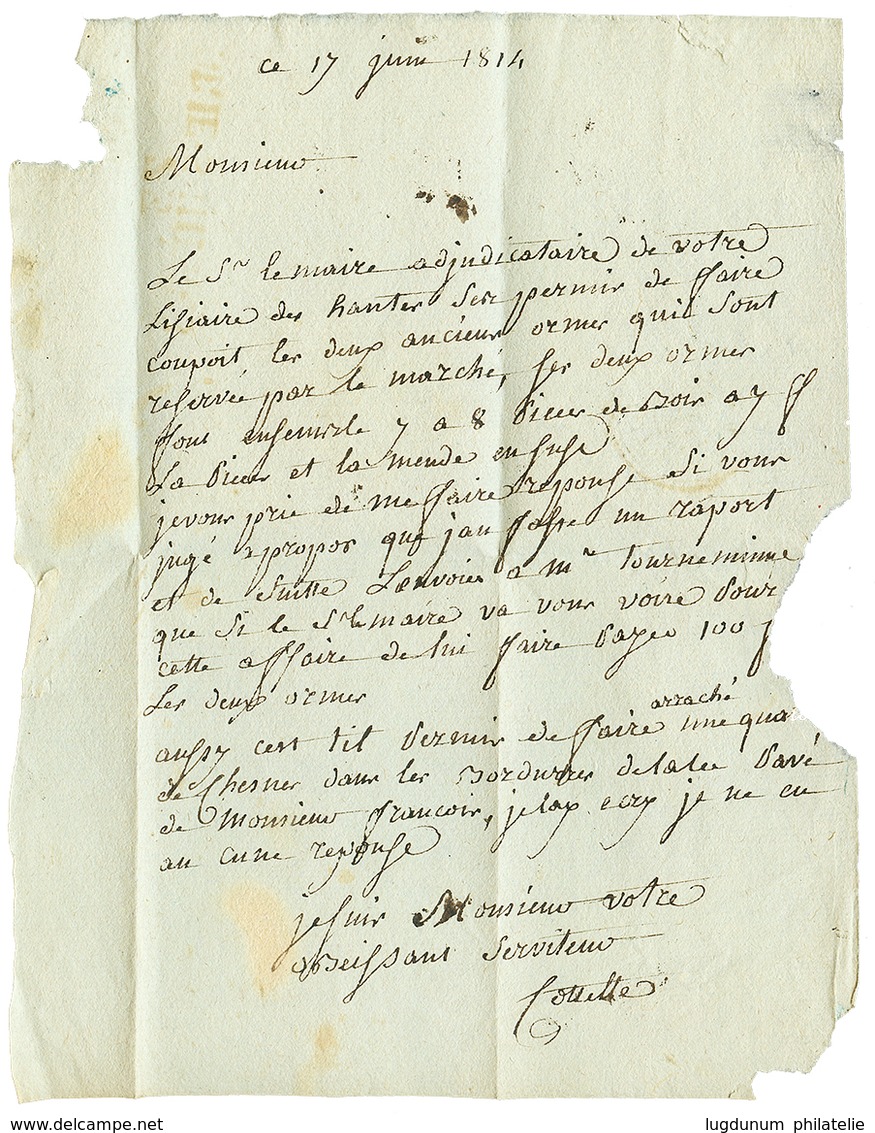 ce 17 juin 1814
Monsieur
Le Sr lemaire adjudicataire de votre
Lisiaire des hantes Ser permis de ffaire
coupoit les deux ancieus ormes quil sont
reservée par le marché, ses deux ormes
ffont ensemble 7 a 8 Pieces de Bois a 7 ff
La Piece et la mende en suse
je vous prie de me ffaire reponse Si vous
jugé apropos que jan ffasse un raport
et de suitte Lenvoier a mr tourneminne
que Si le Sr lemaire va vous voire Pour
cette affaire de lui ffaire Payer 100
Les deux ormes
arraché
aussy cest til Permis de ffaire une qua
de Chesnes dans les Bordurres delalee Pavé
de Monsieur ffrancois, je ne eu
au cune reponse
je suis Monsieur votre
obeissant Serviteur
Cottette
delcampe.net
lugdunum philatelie